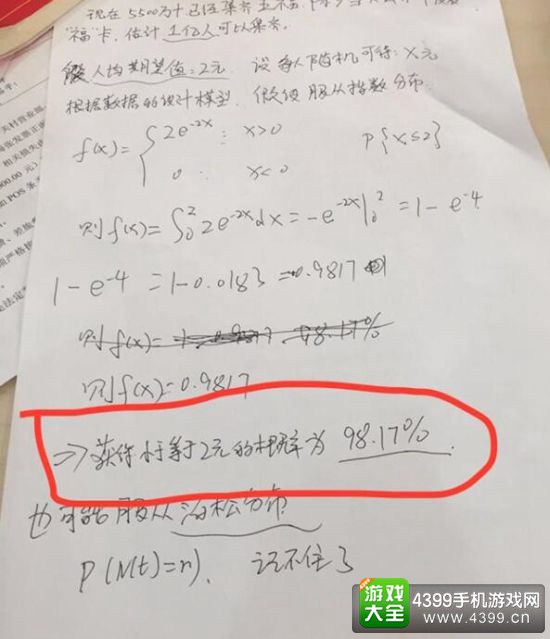 现在5500万个已经集齐五福
"福"卡,估计1亿人可以集齐.
假人均期望值:2元. 设每人随机可得:X元
根据数据的统计模型. 假设服从指数分布
f(x)={ 2e^-2x : x>0 P{x≤2}
0 : x<0
则f(x)=∫₀² 2e^-2x dx = -e^-2x|₀² = 1-e^-4
1-e^-4 = 1-0.0183 = 0.9817
则f(x)= 98.17%
则f(x)=0.9817
⇒获得小于等于2元的概率为 98.17%.
也可能服从泊松分布
P(N(t)=n). 记不住了
游戏大全 4399手机游戏网
www.4399.cn